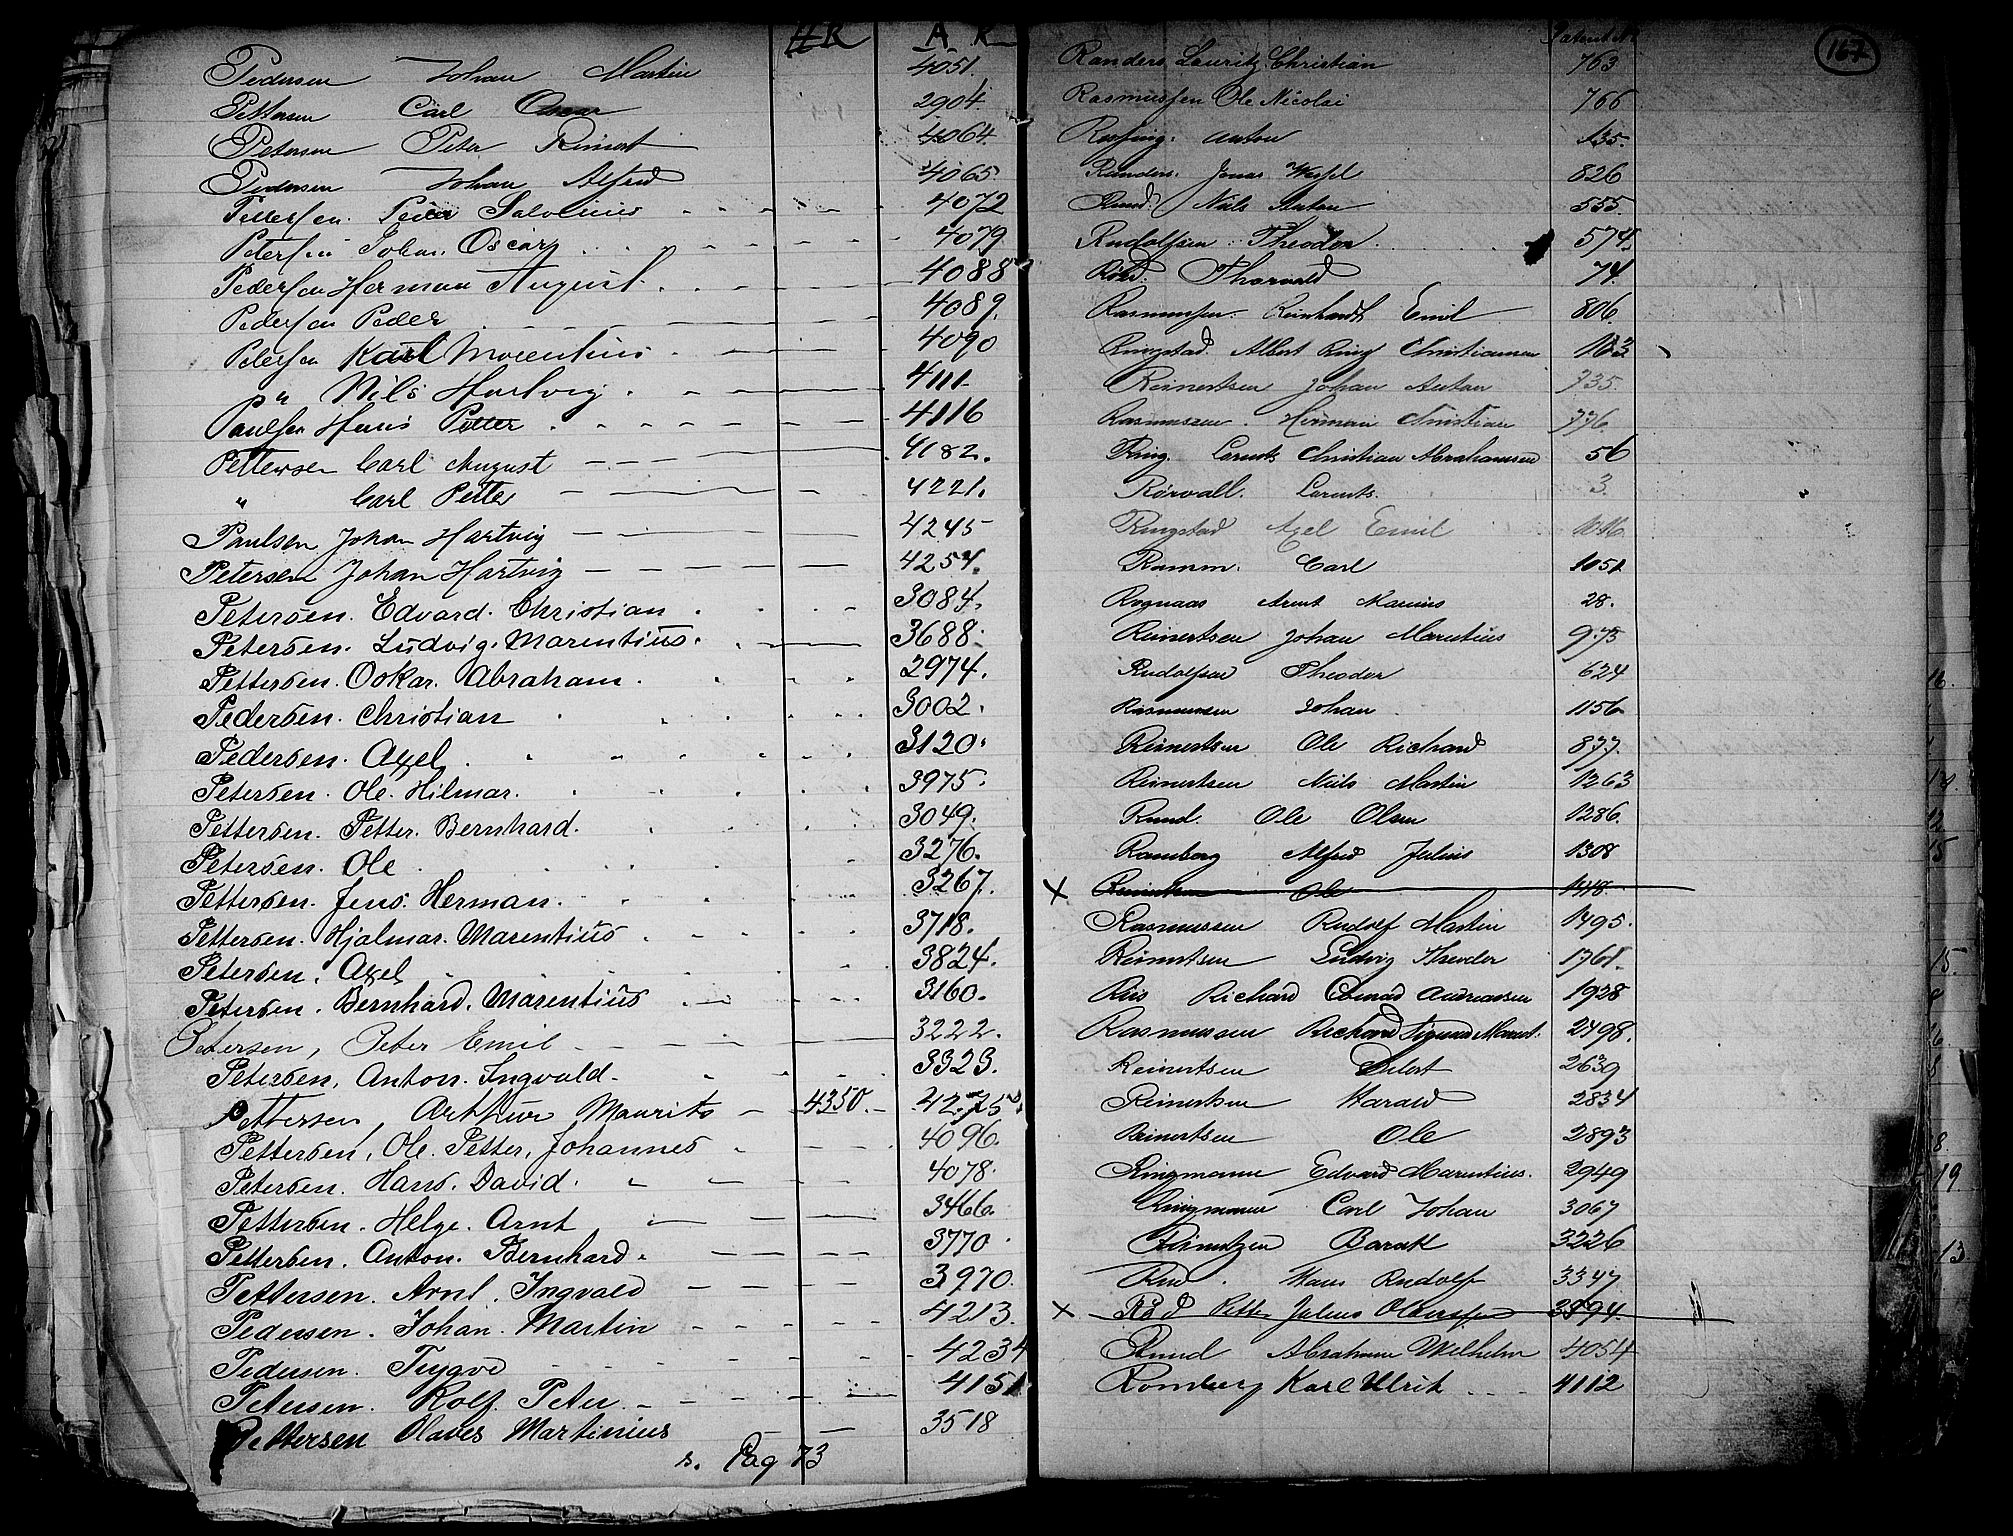 HR A R
Pedersen Johan Martin 4051.
Pettersen Carl Oscar 2904.
Petersen Peter Reinert 4064.
Pedersen Johan Alfred 4065.
Pettersen. Peder Salvinius 4072
Petersen Johan. Oscar 4079
Pedersen Herman August 4088
Pedersen Peder 4089.
Petersen Karl Morentius 4090
" Nils Hartvig 4111
Paulsen Hans Petter 4116
Pettersen Carl August 4182.
" Carl Petter 4221.
Paulsen Johan Hartvig 4245
Petersen Johan Hartvig 4254.
Petersen. Edvard. Christian 3084.
Petersen. Ludvig. Marentius. 3688.
Pettersen. Oskar. Abraham. 2974.
Pedersen. Christian 3002.
Pedersen. Axel. 3120.
Petersen. Ole. Hilmar. 3975.
Pettersen. Petter. Bernhard. 3049.
Petersen. Ole. 3276.
Pettersen. Jens. Herman. 3267.
Pettersen. Hjalmar. Marentius 3718.
Petersen. Axel 3824.
Petersen. Bernhard. Marentius 3160.
Petersen, Peter Emil 3222.
Petersen, Anton. Ingvald. 3323.
Pettersen, Arthur Maurits 4350. 4275
Pettersen, Ole. Petter, Johannes 4096.
Petersen. Hans. David. 4078.
Pettersen. Helge. Arnt 3466.
Pettersen. Anton. Bernhard. 3770
Pettersen. Arnt. Ingvald 3970.
Pedersen. Johan. Martin 4213.
Pedersen. Trygve 4234
Petersen. Rolf. Peter. 4151
Pettersen Olaves Martinius 3518
s. Pag 73
Patent N 167
Randers Lauritz Christian 763
Rasmussen Ole Nicolai 766
Anton 135.
Randers. Jonas Wessel 826
Rund. Niels Anton 555.
Rudolfsen. Theodor. 574.
Röed. Thorvald 74.
Rasmussen. Reinhardt Emil 806.
Ringstad. Albert Ring Christiansen 163
Reinertsen Johan Anton 735.
Rasmussen. Herman Christian 776
Ring. Lorents Christian Abrahamsen 56
Rørvall. Lorents. 3.
Ringstad Axel Emil 1016
Ramm. Carl 1051
Rognaas Arent Marius 28.
Reinertsen Johan Marentius 973
Rudolfsen Theodor 624
Rasmussen Johan 1156
Reinertsen Ole Richard 877.
Reinertsen Niels Martin 1263
Rund. Ole Olsen 1286.
Ramberg Alfred Julius 1308
x Reinertsen Ole 1418.
Rasmussen Rudolf Martin 1495.
Reinertsen Ludvig Theodor 1761.
Riis Richard Conrad Andreassen 1928
Rasmussen Richard Sigvard Marent. 2498.
Reinertsen Eilert 2639
Reinertsen Harald 2834
Reinertsen Ole 2893
Ringmann Edvard Marentius. 2949
Ringmann Carl Johan 3067
Reinertzen Barak 3226
Rud. Hans Rudolf 3347
x Röd Petter Julius Olaussen 3894.
Rund Abraham Wilhelm 4054
Romberg Karl Ulrik 4112